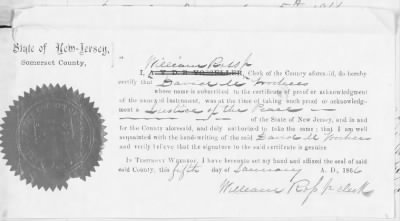 State of New-Jersey,
Somerset County,
William Ross
I, Clerk of the County aforesaid, do hereby
certify that David M
whose name is subscribed to the certificate of proof or acknowledgment
of the annexed instrument, was at the time of taking such proof or acknowledg-
ment a Justice of the Peace
of the State of New Jersey, and in and
for the County aforesaid, and duly authorized to take the same: that I am well
acquainted with the hand-writing of the said David M
and verily believe that the signature to the said certificate is genuine
In Testimony Whereof, I have hereunto set my hand and affixed the seal of said
said County, this fifth day of January A. D., 1866
William Ross clerk